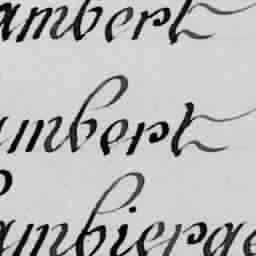 ambert
mbert
ambierge